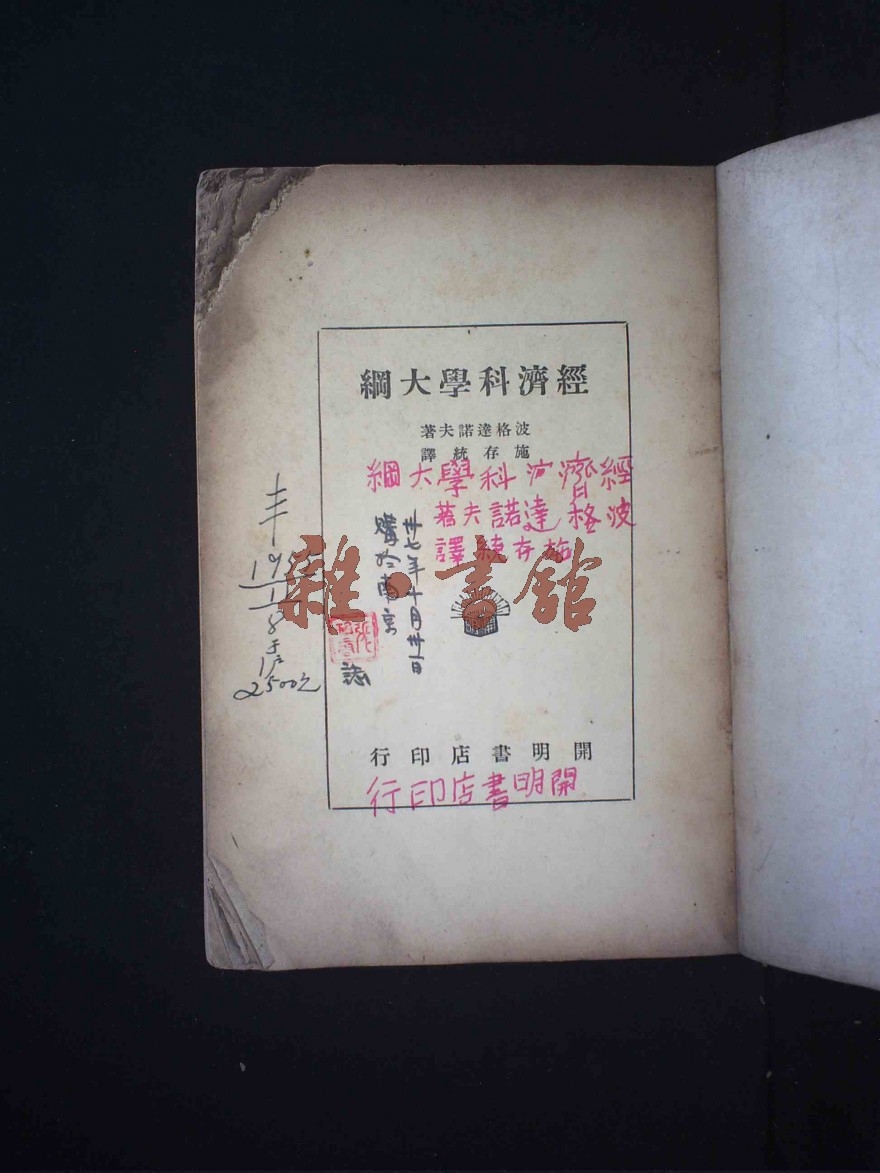 經濟科學大綱
波格達諾夫著
施存統譯
經濟疒科學大綱
波格達諾夫著
施存統譯
卅七年十月卅一日
購於南京
誌
雜·書館
丰
1955
1
8
于滬
2500元
開明書店印行
開明書店印行